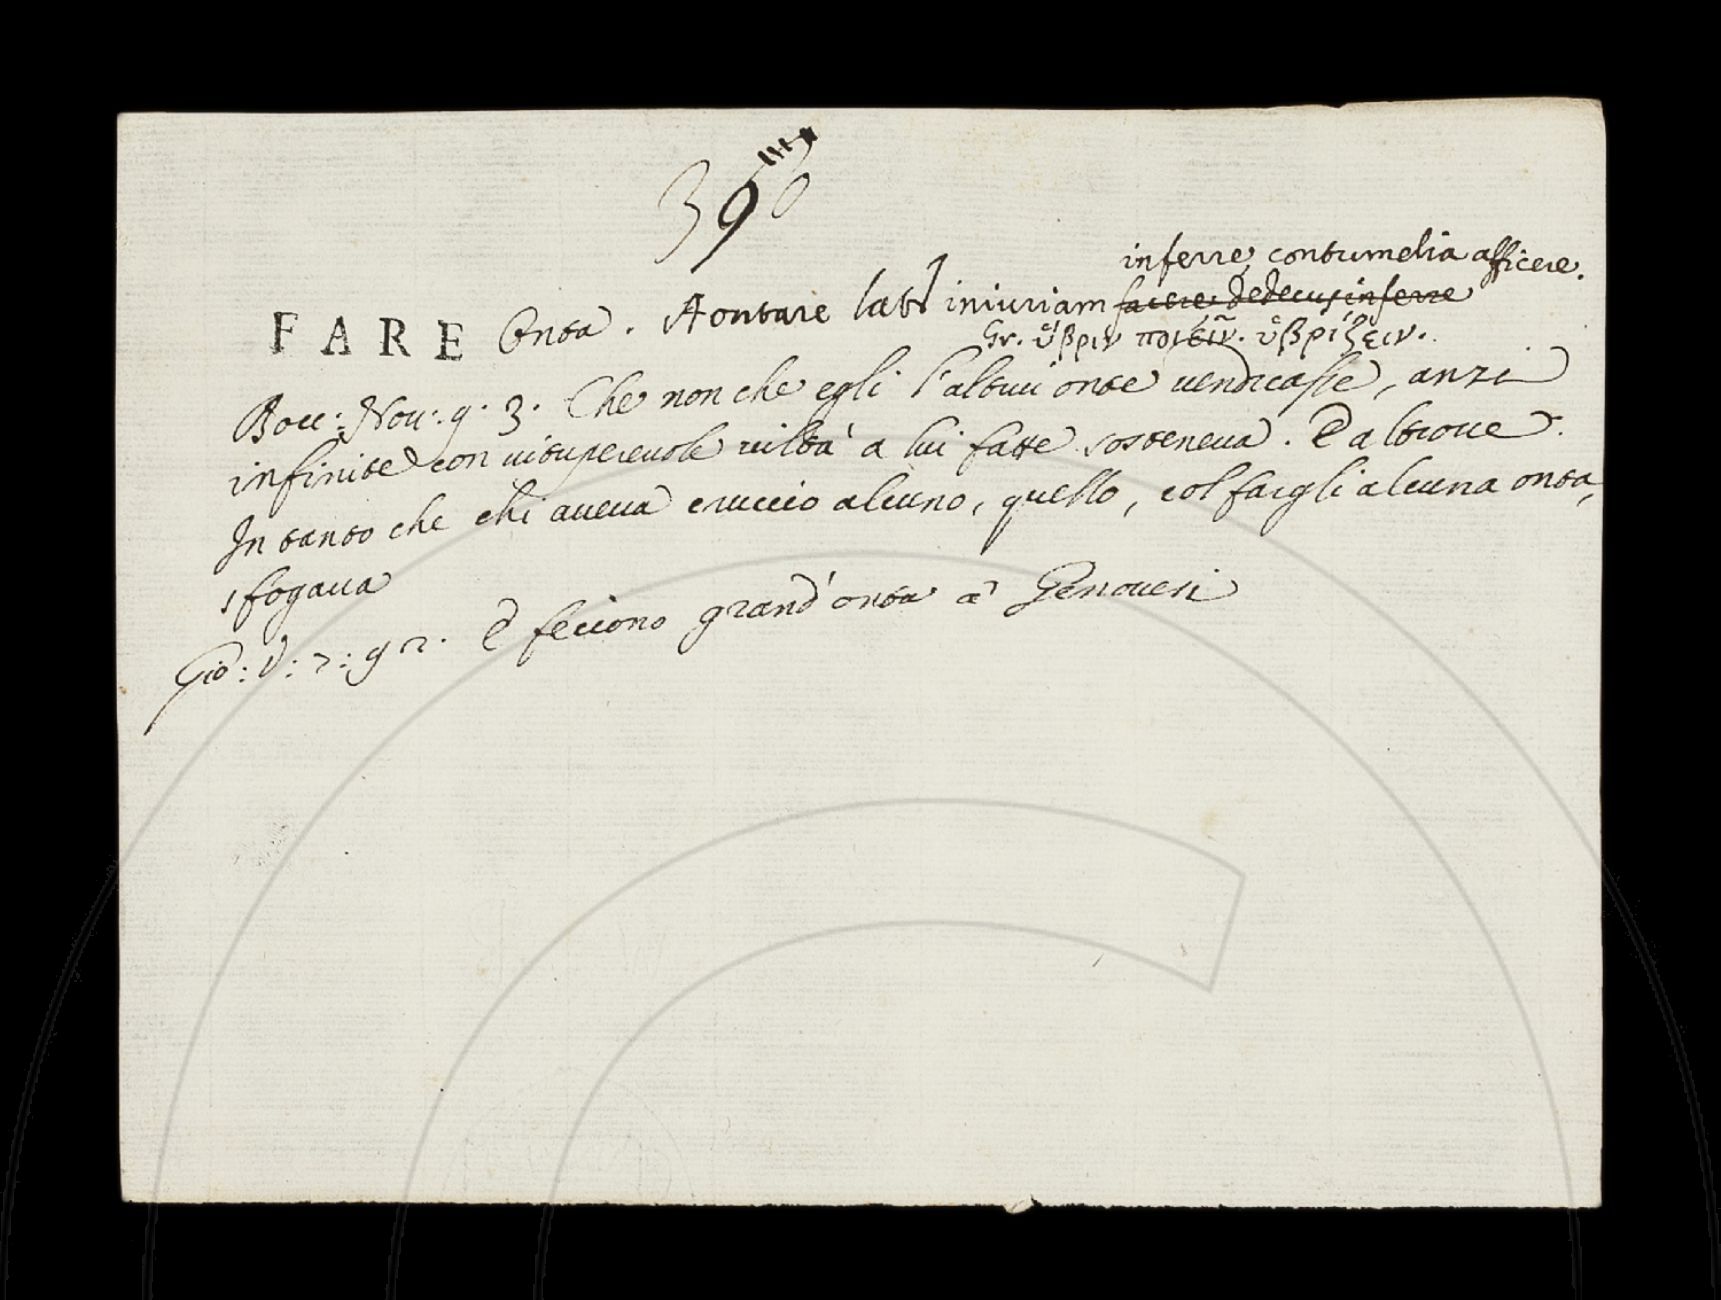 inferre, contumelia afficere.
FARE Onta. Aontare lat. iniuriam facere, dedecus inferre
Gr. ὕβριν ποιεῖν. ὑβρίζειν.
Bocc: Nov: 9. 3. Che non che egli l'altrui onte vendicasse, anzi
infinite con vituperevole viltà a lui fatte sosteneua. E altroue.
In tanto che chi aueua cruccio alcuno, quello, col fargli alcuna onta,
sfogaua
Gio: V: 7: 92. E feciono grand'onta a' Genouesi